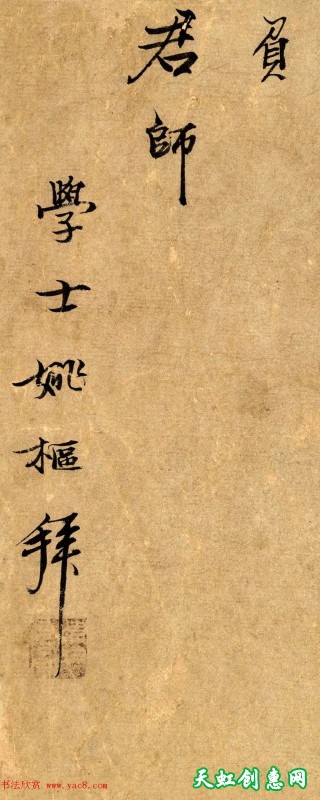 負
君師
學士姚樞拜
书法欣赏 www.yac8.com
天虹创惠网